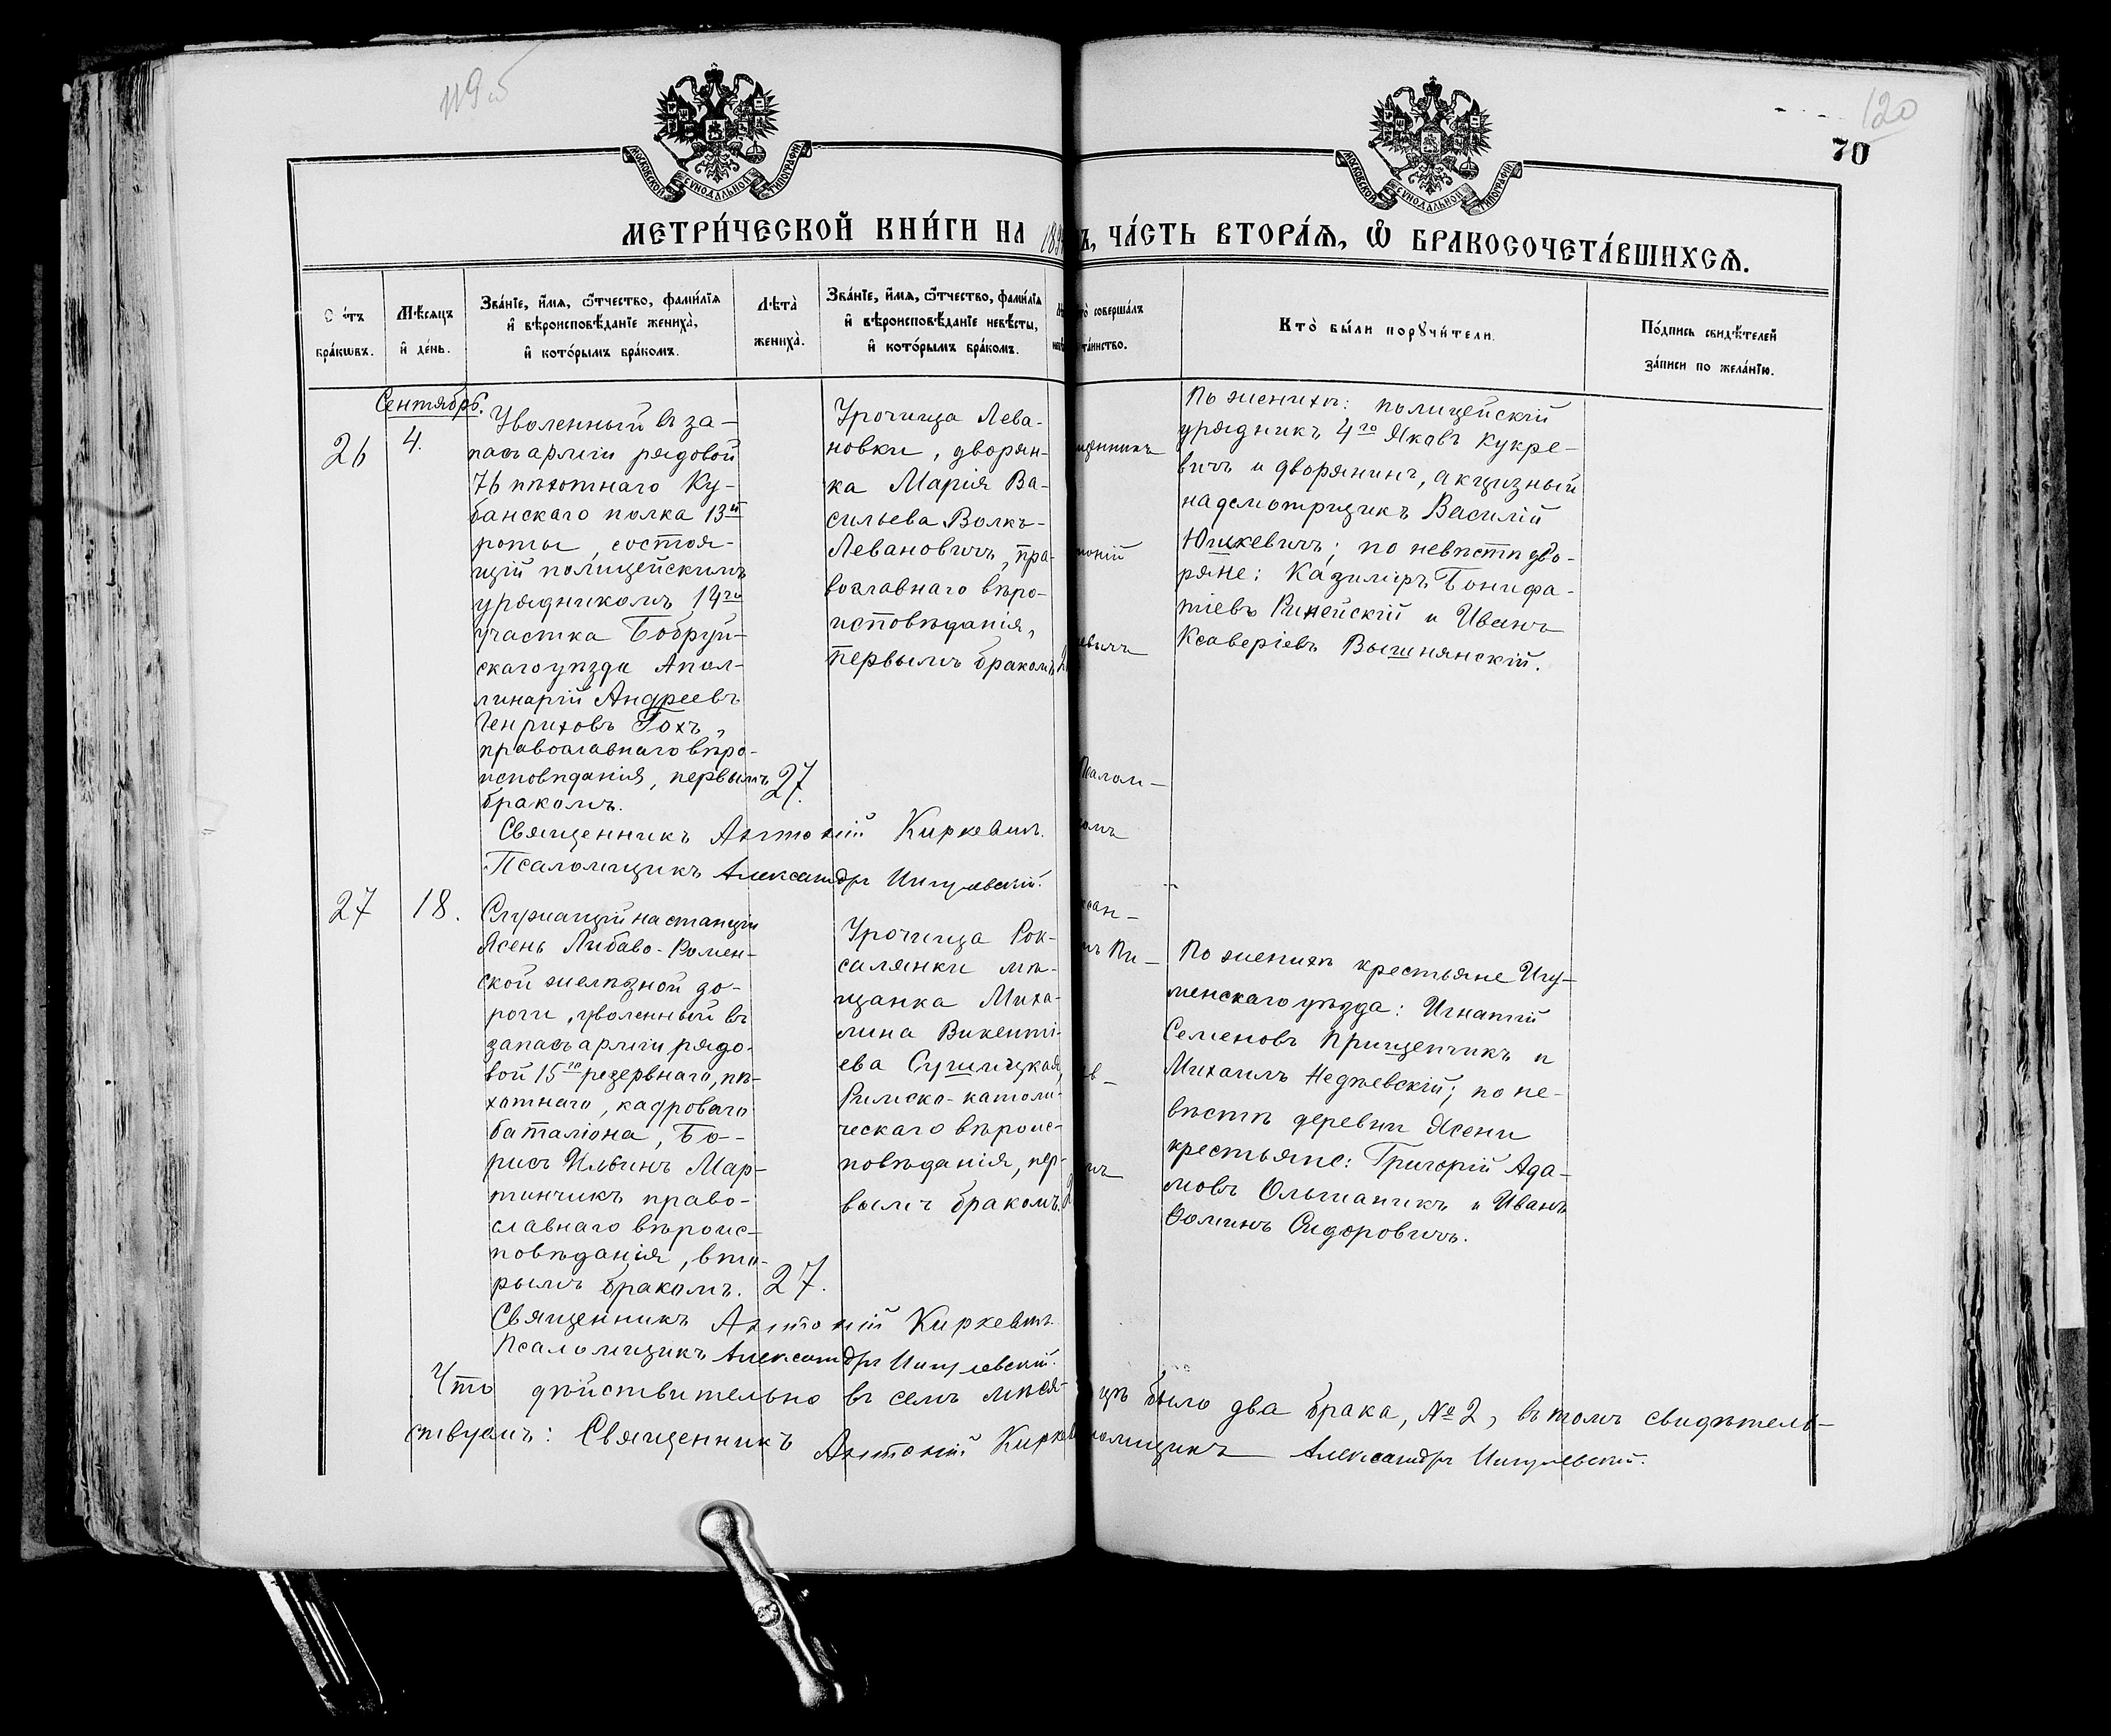 119об
120
70
МЕТРИ́ЧЕСКОЙ КНИ́ГИ НА 189
Ъ, ЧА́СТЬ ВТОРА́Ѧ, Ѡ҆ БРАКОСОЧЕТА́ВШИХСѦ.
бра́кѡвъ.
Мѣ́сѧцъ
и҆ де́нь.
Зва́нїе, и҆́мѧ, ѻ҆́тчество, фами́лїѧ
и҆ вѣроисповѣ́данїе жениха̀,
и҆ кото́рымъ бра́комъ.
Лѣ́та
жениха̀.
Зва́нїе, и҆́мѧ, ѻ҆́тчество, фами́лїѧ
и҆ вѣроисповѣ́данїе невѣ́сты,
и҆ кото́рымъ бра́комъ.
соверша́лъ
та́инство.
Кто̀ бы́ли порꙋчи́тели.
По́дпись свидѣ́телей
за́писи по жела́нїю.
Сентябрь.
26
4.
Уволенный въ за-
пасъ арміи рядовой
76 пѣхотнаго Ку-
банскаго полка 13й
роты, состоя-
щій полицейскимъ
урядникомъ 14го
участка Бобруй-
скаго уѣзда Апол-
линарій Андреевъ
Генриховъ Гохъ,
православнаго вѣро-
исповѣданія, первымъ
бракомъ.
27.
Урочища Лева-
новки, дворян-
ка Марія Ва-
сильева Волкъ-
Левановичъ, пра-
вославнаго вѣро-
исповѣданія,
первымъ бракомъ
По женихѣ: полицейскій
урядникъ 4го Яковъ Кукре-
вичъ и дворянинъ, акцизный
надсмотрщикъ Василій
Юшкевичъ; по невѣстѣ дво-
ряне: Казиміръ Бонифа-
тіевъ Ринейскій и Иванъ
Ксаверіевъ Вышнянскій.
Священникъ Антоній Киркевичъ.
Псаломщикъ Александръ
27
18.
Служащій на станціи
Ясень Либаво-Ромен-
ской желѣзной до-
роги, уволенный въ
запасъ арміи рядо-
вой 15го резервнаго, пѣ-
хотнаго, кадроваго
баталіона, Бо-
рисъ Ильинъ Мар-
тинчикъ право-
славнаго вѣроис-
повѣданія, вто-
рымъ бракомъ.
27.
Урочища Рок-
салянки мѣ-
щанка Миха-
лина Викенті-
ева Сушицкая,
Римско-католи-
ческаго вѣроис-
повѣданія, пер-
вымъ бракомъ.
По женихѣ крестьяне Игу-
менскаго уѣзда: Игнатій
Семеновъ Прищепчикъ и
Михаилъ Недѣевскій; по не-
вѣстѣ деревни Ясени
крестьяне: Григорій Ада-
мовъ Ольшаникъ и Иванъ
Ѳоминъ Сидоровичъ.
Священникъ Антоній Киркевичъ.
Псаломщикъ Александръ
Что дѣйствительно въ семъ мѣся-
цѣ было два брака, № 2, въ томъ свидѣтель-
ствуемъ: Священникъ Антоній
Александръ